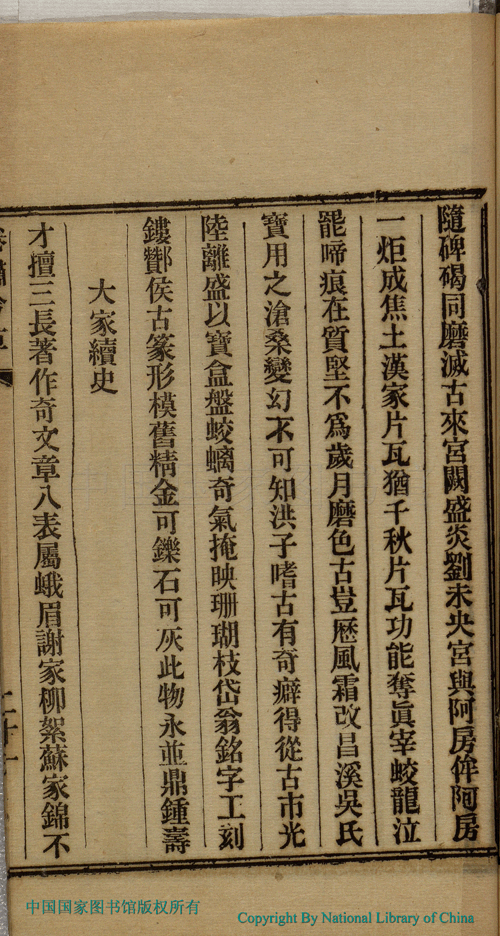 隨碑碣同磨滅古來宮闕盛炎劉未央宮與阿房侔阿房
一炬成焦土漢家片瓦猶千秋片瓦功能奪眞宰蛟龍泣
罷啼痕在質堅不爲歲月磨色古豈歷風霜改昌溪吳氏
寶用之滄桑變幻不可知洪子嗜古有奇癖得從古市光
陸離盛以寶盒盤蛟螭奇氣掩映珊瑚枝岱翁銘字工刻
鏤酇侯古篆形模舊精金可鑠石可灰此物永並鼎鍾壽
大家續史
才擅三長著作奇文章八表屬蛾眉謝家柳絮蘇家錦不
中国国家图书馆版权所有
Copyright By National Library of China